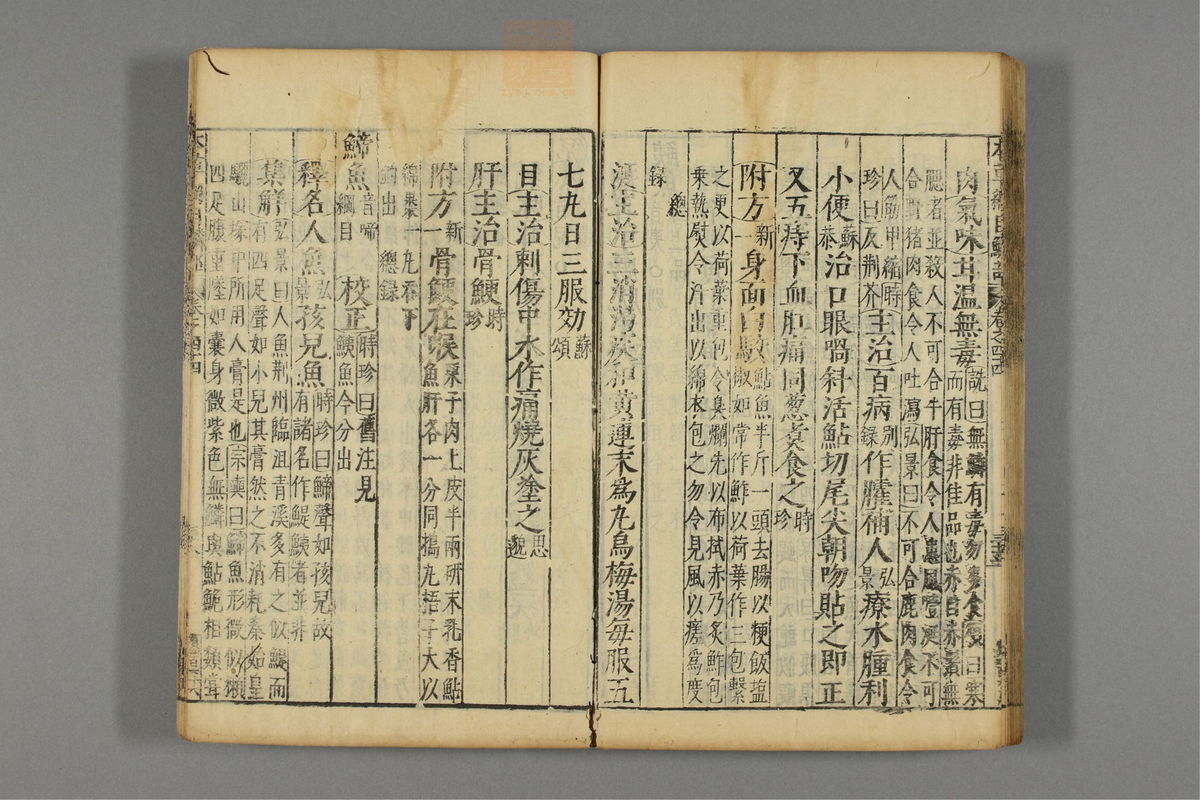 肉氣味甘溫無毒詵曰無鱗有毒勿多食頌曰寒
而有毒非佳品也赤目赤鬚無
腮者並殺人不可合牛肝食令人患風噎涎不可
合野猪肉食令人吐瀉弘景曰不可合鹿肉食令
人筋甲縮時
珍曰反荆芥主治百病別
錄作臛補人弘
景療水腫利
小便蘇
恭治口眼喎斜活鮎切尾尖朝吻貼之即正
又五痔下血肛痛同葱煮食之時
珍
附方新
一身面白駁鮎魚半斤一頭去腸以粳飯鹽
椒如常作鮓以荷葉作三包繫
之更以荷葉重包令臭爛先以布拭赤乃炙鮓包
乗熱熨令汗出以綿衣包之勿令見風以瘥為度
總
錄
涎主治三消渴疾和黃連末為丸烏梅湯每服五
七丸日三服効蘇
頌
目主治刺傷中水作痛燒灰塗之思
邈
肝主治骨鯁時
珍
附方新
一骨鯁在喉栗子肉上皮半兩研末乳香鮎
魚肝各一分同搗丸梧子大以
綿裹一丸吞下
鈎出 總錄
䱱魚音啼
綱目 校正時珍曰舊注見
鮧魚今分出
釋名人魚弘
景孩兒魚時珍曰䱱聲如孩兒故
有諸名作鯷鮧者並非
集解弘景曰人魚荆州臨沮青溪多有之似鯷而
有四足聲如小兒其膏然之不消耗秦始皇
驪山塚中所用人膏是也宗奭曰䱱魚形微似獺
四足腹重墜如囊身微紫色無鱗與鮎鮠相類嘗